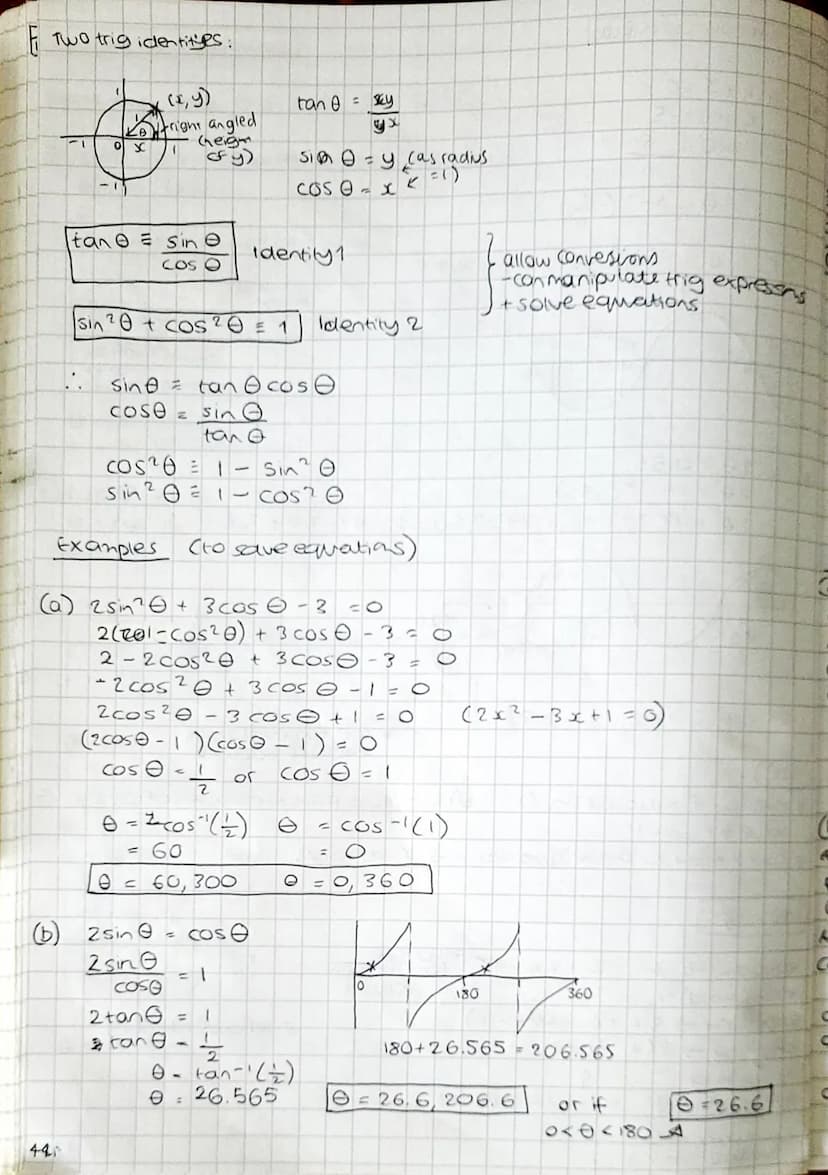 Two trig identityes:
1
(x, y)
1
θ
right angled
(height
of y)
-1 0 x 1
-1
tan θ = xy
yx
sin θ = y (as radius
cos θ = x = 1)
tan θ ≡ sin θ
cos θ
Identity 1
sin²θ + cos²θ ≡ 1 Identity 2
allow conversions
- can manipulate trig expressons
+ solve equations
∴ sin θ ≡ tan θ cos θ
cos θ = sin θ
tan θ
cos²θ ≡ 1 - sin²θ
sin²θ ≡ 1 - cos²θ
Examples (to solve equations)
(a) 2sin²θ + 3cos θ - 3 = 0
2(1 - cos²θ) + 3cos θ - 3 = 0
2 - 2cos²θ + 3cosθ - 3 = 0
-2cos²θ + 3cos θ - 1 = 0
2cos²θ - 3cosθ + 1 = 0 (2x² - 3x + 1 = 0)
(2cosθ - 1)(cosθ - 1) = 0
cos θ = 1/2 or cos θ = 1
θ = cos⁻¹(1/2) θ = cos⁻¹(1)
= 60 = 0
θ = 60, 300 θ = 0, 360
(b) 2sin θ = cos θ
2sin θ
cosθ
= 1
2tanθ = 1
tanθ = 1/2
θ = tan⁻¹(1/2)
θ = 26.565
0 180 360
180 + 26.565 = 206.565
θ = 26.6, 206.6 or if θ = 26.6
0 < θ < 180
44.